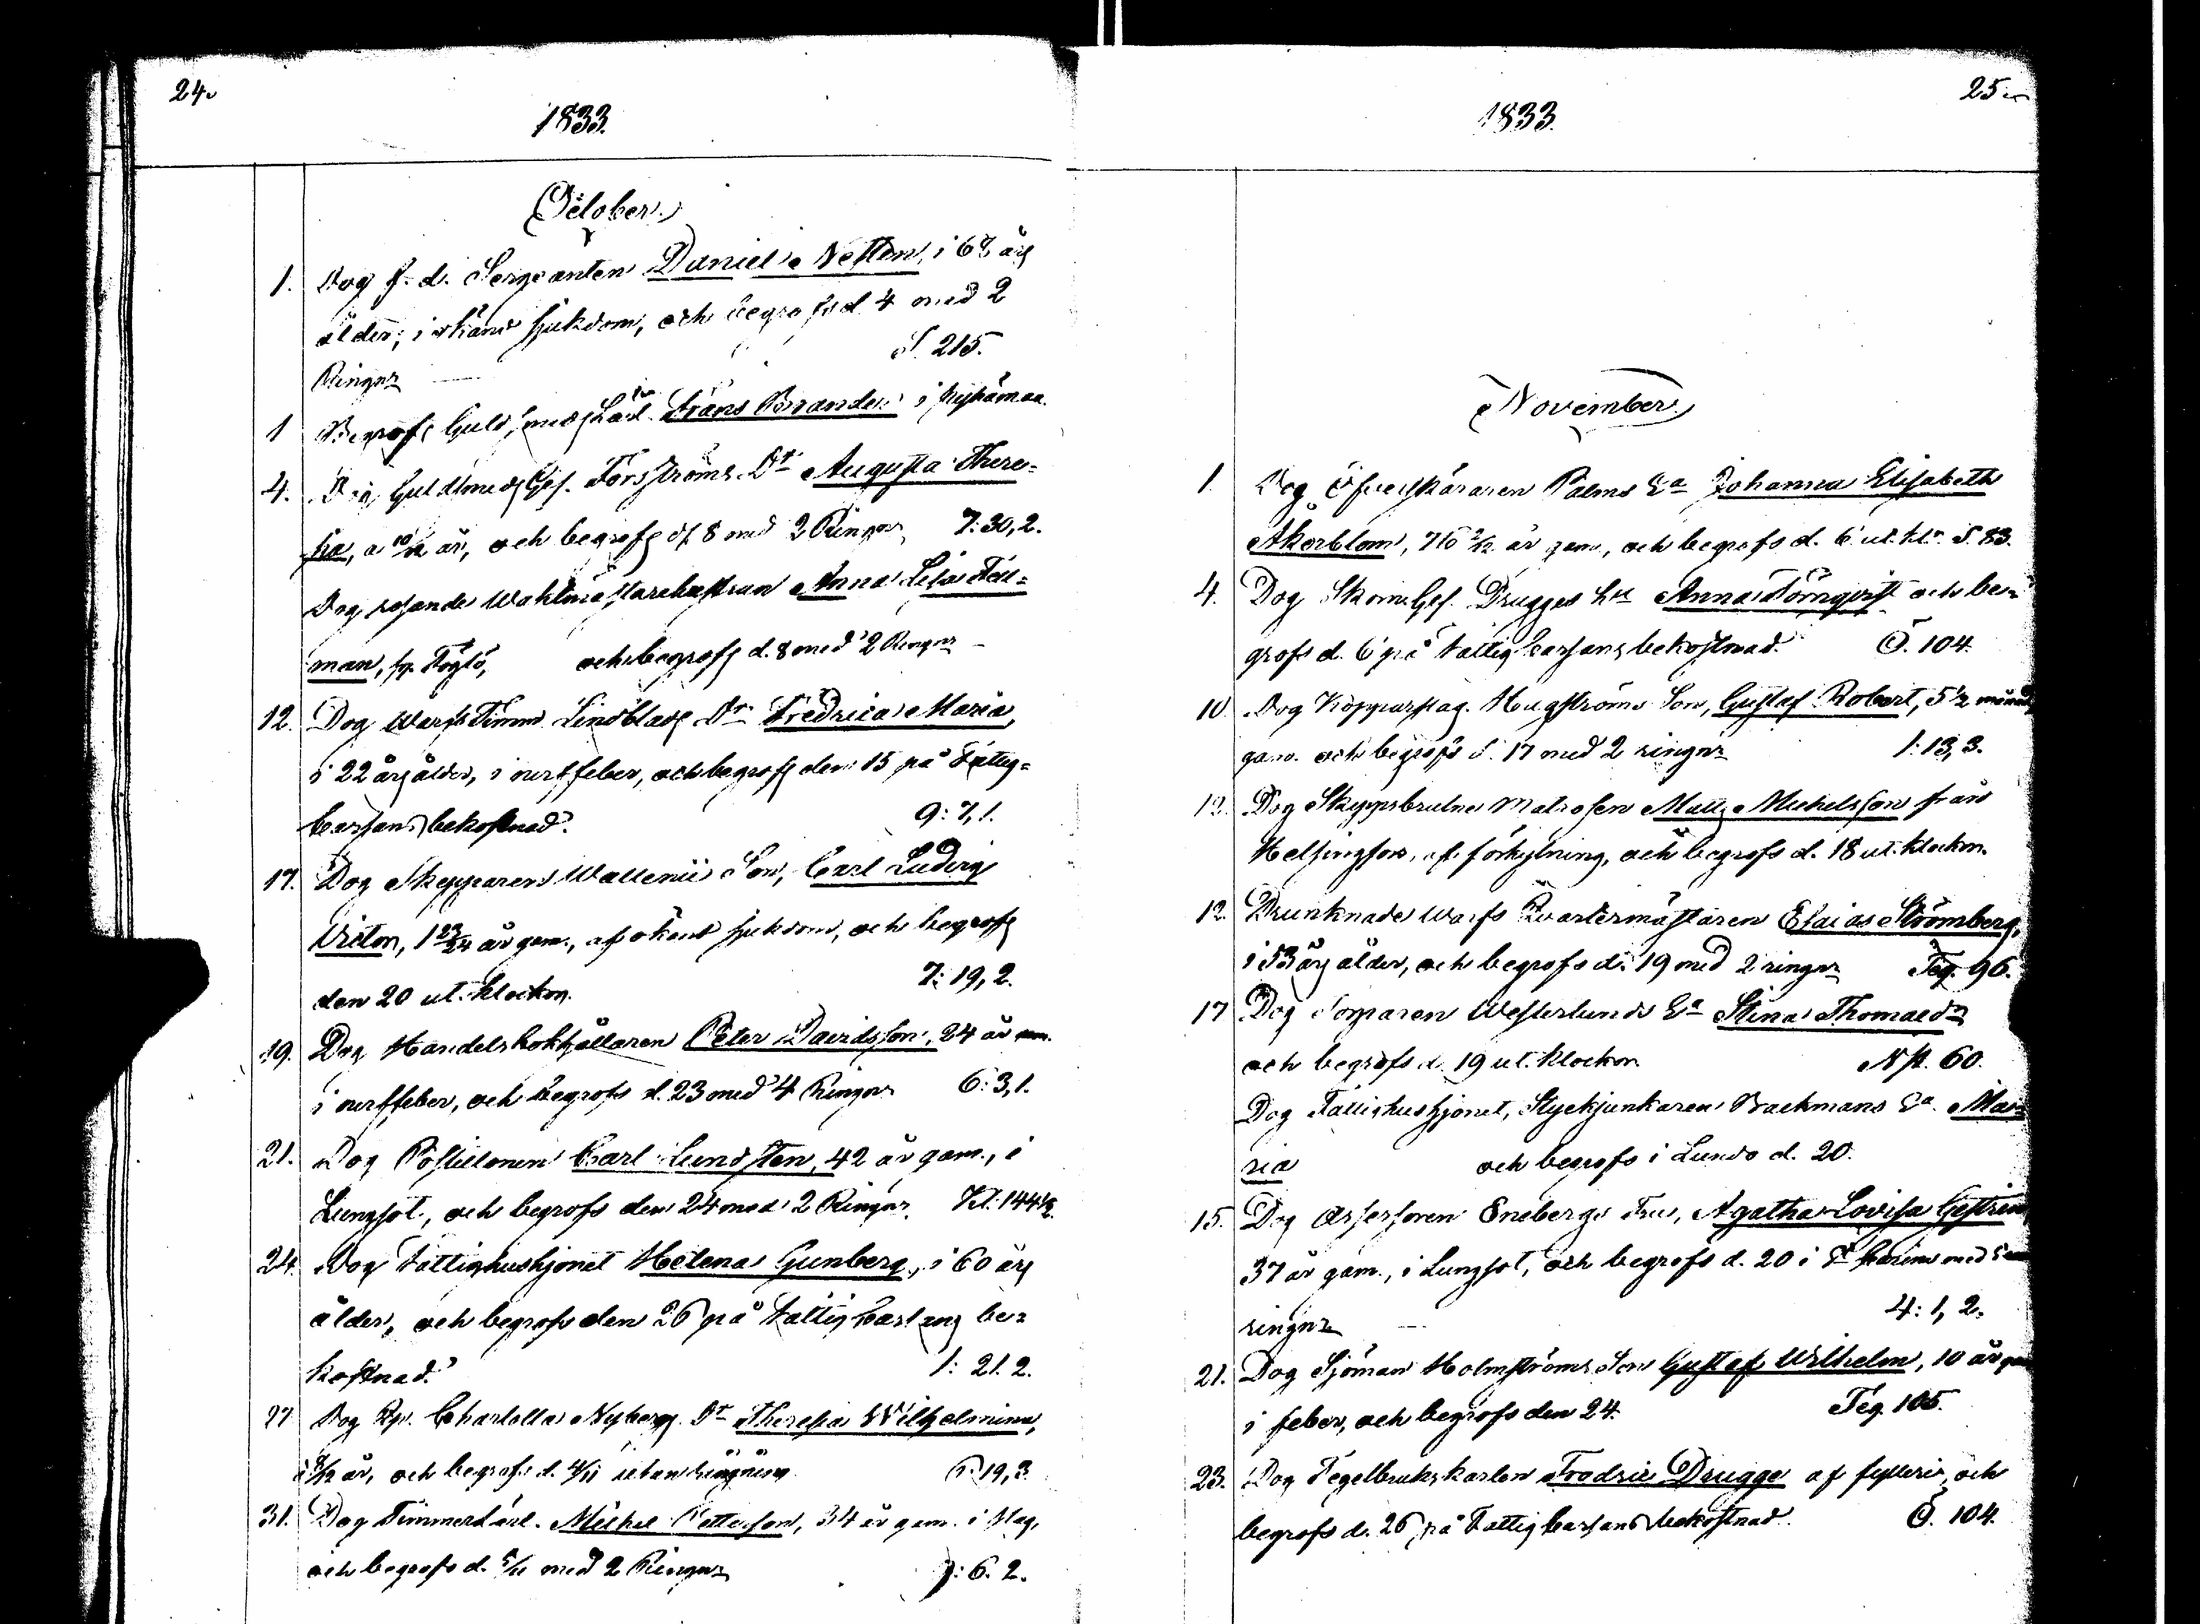 24.
1833.
October.
1. Dog f. d. Sergeanten Daniel Netten, i 68 års
ålder, i okänd sjukdom, och begrofs d. 4 med 2
Ringnr S. 215.
1 Begrofs Guldsmeds Lärl. Frans Brander i Nykarna
4. Dog Guldsmeds Ges. Forsströms Dr Augusta There=
sia, a 10/12 år, och begrofs d. 8 med 2 Ringnr 7: 30, 2.
Dog resande Wahlmästarehustrun Anna Lisa Fell=
man, fr. Föglö, och begrofs d. 8 med 2 Ringnr
12. Dog Warfs Timm. Lindblads Dr Fredrica Maria,
i 22 års ålder, i nerffeber, och begrofs den 15 på Fattig=
Cassans bekostnad. 9: 7, 1.
17. Dog Skepparen Wallenii Son, Carl Ludvig
Victon, 1 23/24 år gam., af okänd sjukdom, och begrofs
den 20 ut. klockor. 7: 19, 2.
19. Dog Handelsbokhållaren Peter Davidsson, 24 år gam.
i nerffeber, och begrofs d. 23 med 4 Ringnr 6: 3, 1.
21. Dog Postillonen Carl Lundsten, 42 år gam., i
Lungsot, och begrofs den 24 med 2 Ringnr. Kl. 144 1/2.
24. Dog Fattighushjonet Helena Gunberg, i 60 års
ålder, och begrofs den 26 på Fattig Cassans be=
kostnad. 1: 21. 2.
27 Dog Pig. Charlotta Nybergs Dr Theresia Wilhelmina,
a 8/12 år, och begrofs d. 4/11 utan ringning 19, 3.
31. Dog Timmerkarl. Michel Pettersson, 34 år gam. i slag,
och begrofs d. 5/11 med 2 Ringnr : 6. 2.
25.
1833.
November.
1. Dog Öfverskäraren Palms Ea Johanna Elisabeth
Åkerblom, 76 2/12 år gam., och begrofs d. 6 ut. kl. S. 83.
4. Dog Skom. Ges. Drugges hu Anna Törnqvist och be=
grofs d. 6 på Fattig Cassans bekostnad. Ö. 104.
10. Dog Kopparslag. Hugströms Son, Gustaf Robert, 5 1/2 månad
gam. och begrofs d. 17 med 2 ringnr 1: 13, 3.
12. Dog Skeppsbrutne Matrosen Matts Michelsson från
Helsingfors, af förkylning, och begrofs d. 18 ut. klockor.
12. Drunknade Warfs Qvartermästaren Esaias Strömberg,
i 53 års ålder, och begrofs d. 19 med 2 ringnr Teg. 96.
17 Dog Torparen Westerlunds Ea Stina Thomasdr
och begrofs d. 19 ut. klockor. N st. 60.
Dog Fattighushjonet, Styckjunkaren Backmans Ea Ma=
ria och begrofs i Lundo d. 20.
15. Dog Assessoren Enebergs Fru, Agatha Lovisa Gestrin
37 år gam., i Lungsot, och begrofs d. 20 i St Karins med
ringnr 4: 1, 2.
21. Dog Sjöman Holmströms Son Gustaf Wilhelm, 10 år gam
i feber, och begrofs den 24. Teg. 105.
23. Dog Tegelbrukskarlen Fredric Drugge af fylleri, och
begrofs d. 26 på Fattig Cassans bekostnad. Ö. 104.